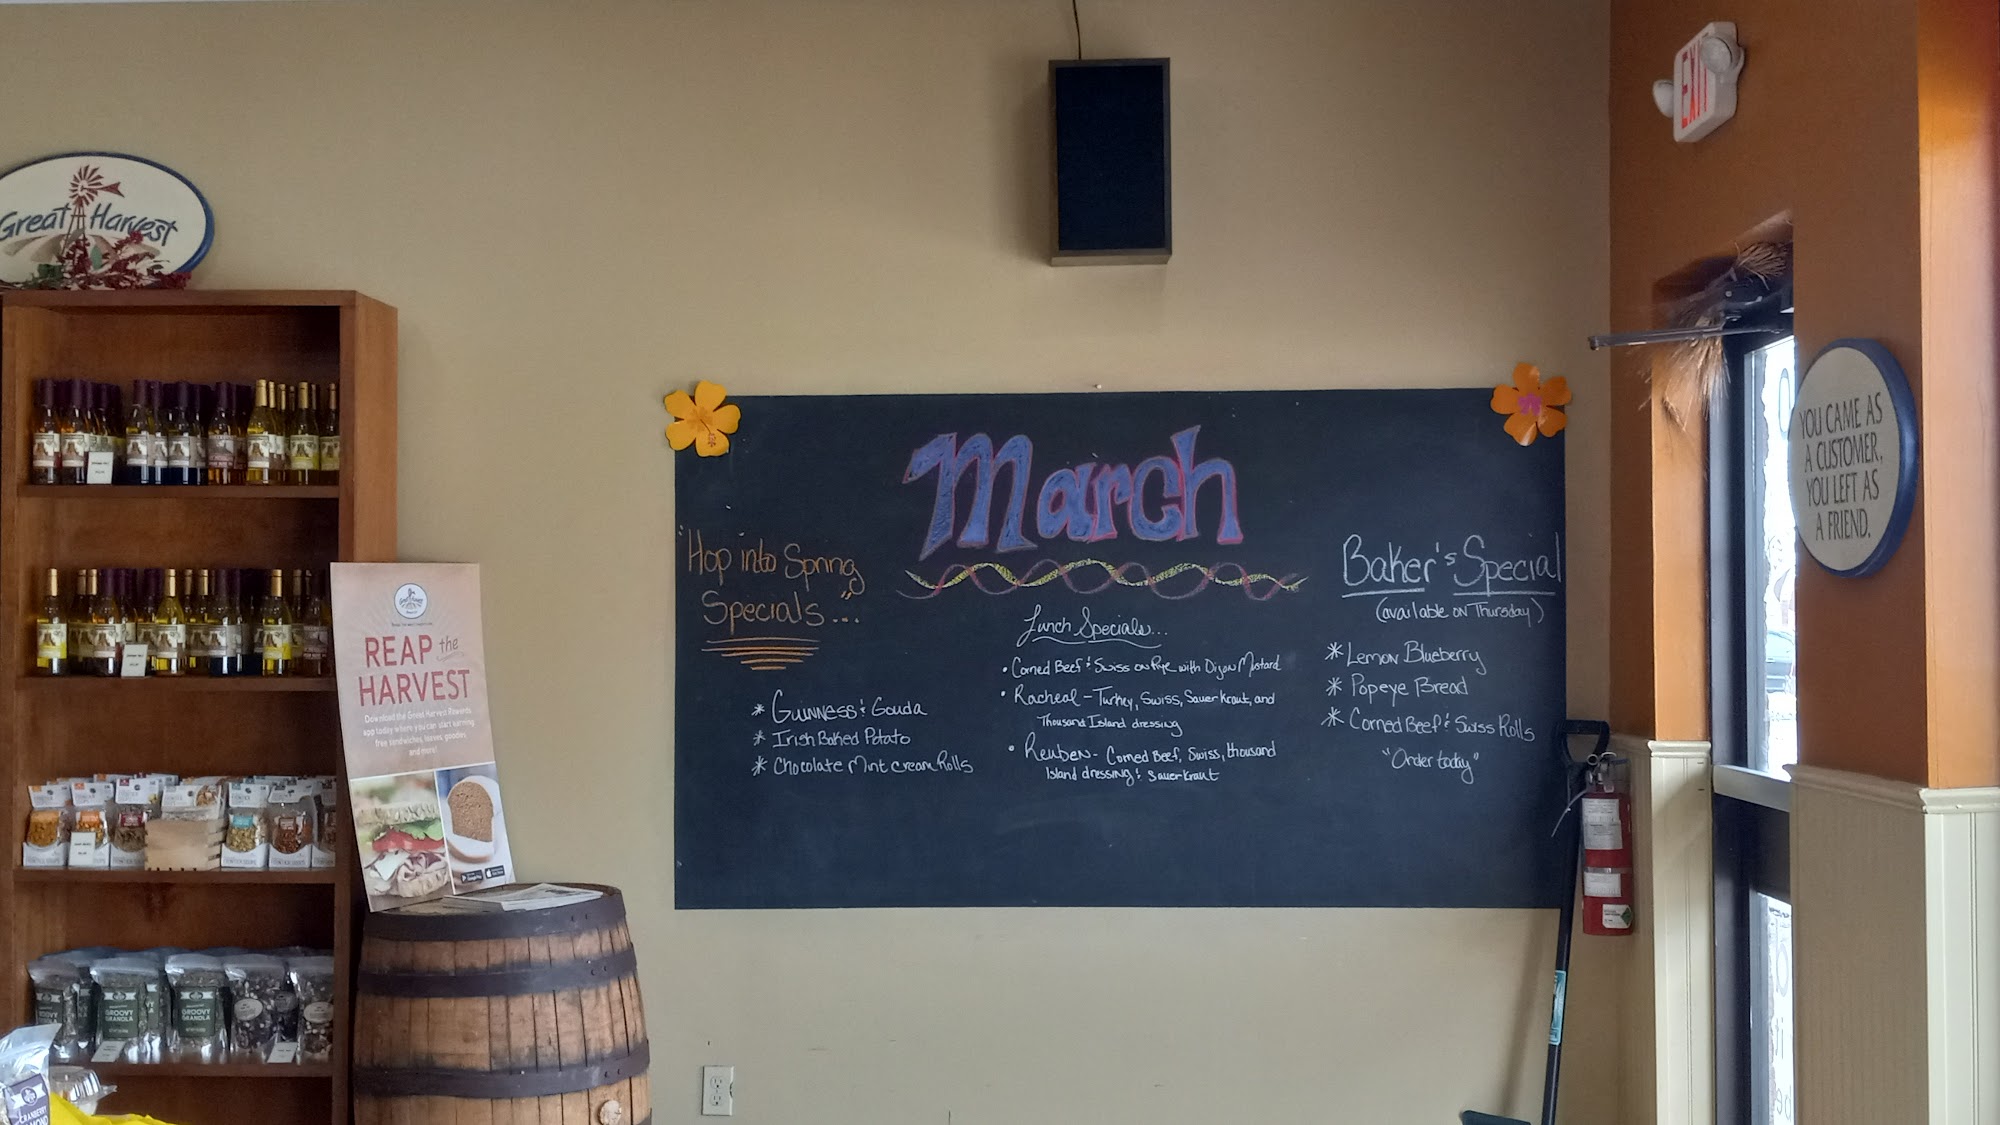 Great Harvest
EXIT
YOU CAME AS
A CUSTOMER,
YOU LEFT AS
A FRIEND.
March
"Hop into Spring
Specials..."
* Guinness & Gouda
* Irish Baked Potato
* Chocolate Mint Cream Rolls
Lunch Specials...
• Corned Beef & Swiss on Rye with Dijon Mustard
• Racheal - Turkey, Swiss, Sauer Kraut, and
Thousand Island dressing
• Reuben - Corned Beef, Swiss, thousand
Island dressing & Sauerkraut
Baker's Special
(available on Thursday)
* Lemon Blueberry
* Popeye Bread
* Corned Beef & Swiss Rolls
"Order today"
REAP the
HARVEST
Download the Great Harvest Rewards
app today where you can start earning
free sandwiches, loaves, goodies
and more!
GROOVY
GRANOLA
GROOVY
GRANOLA